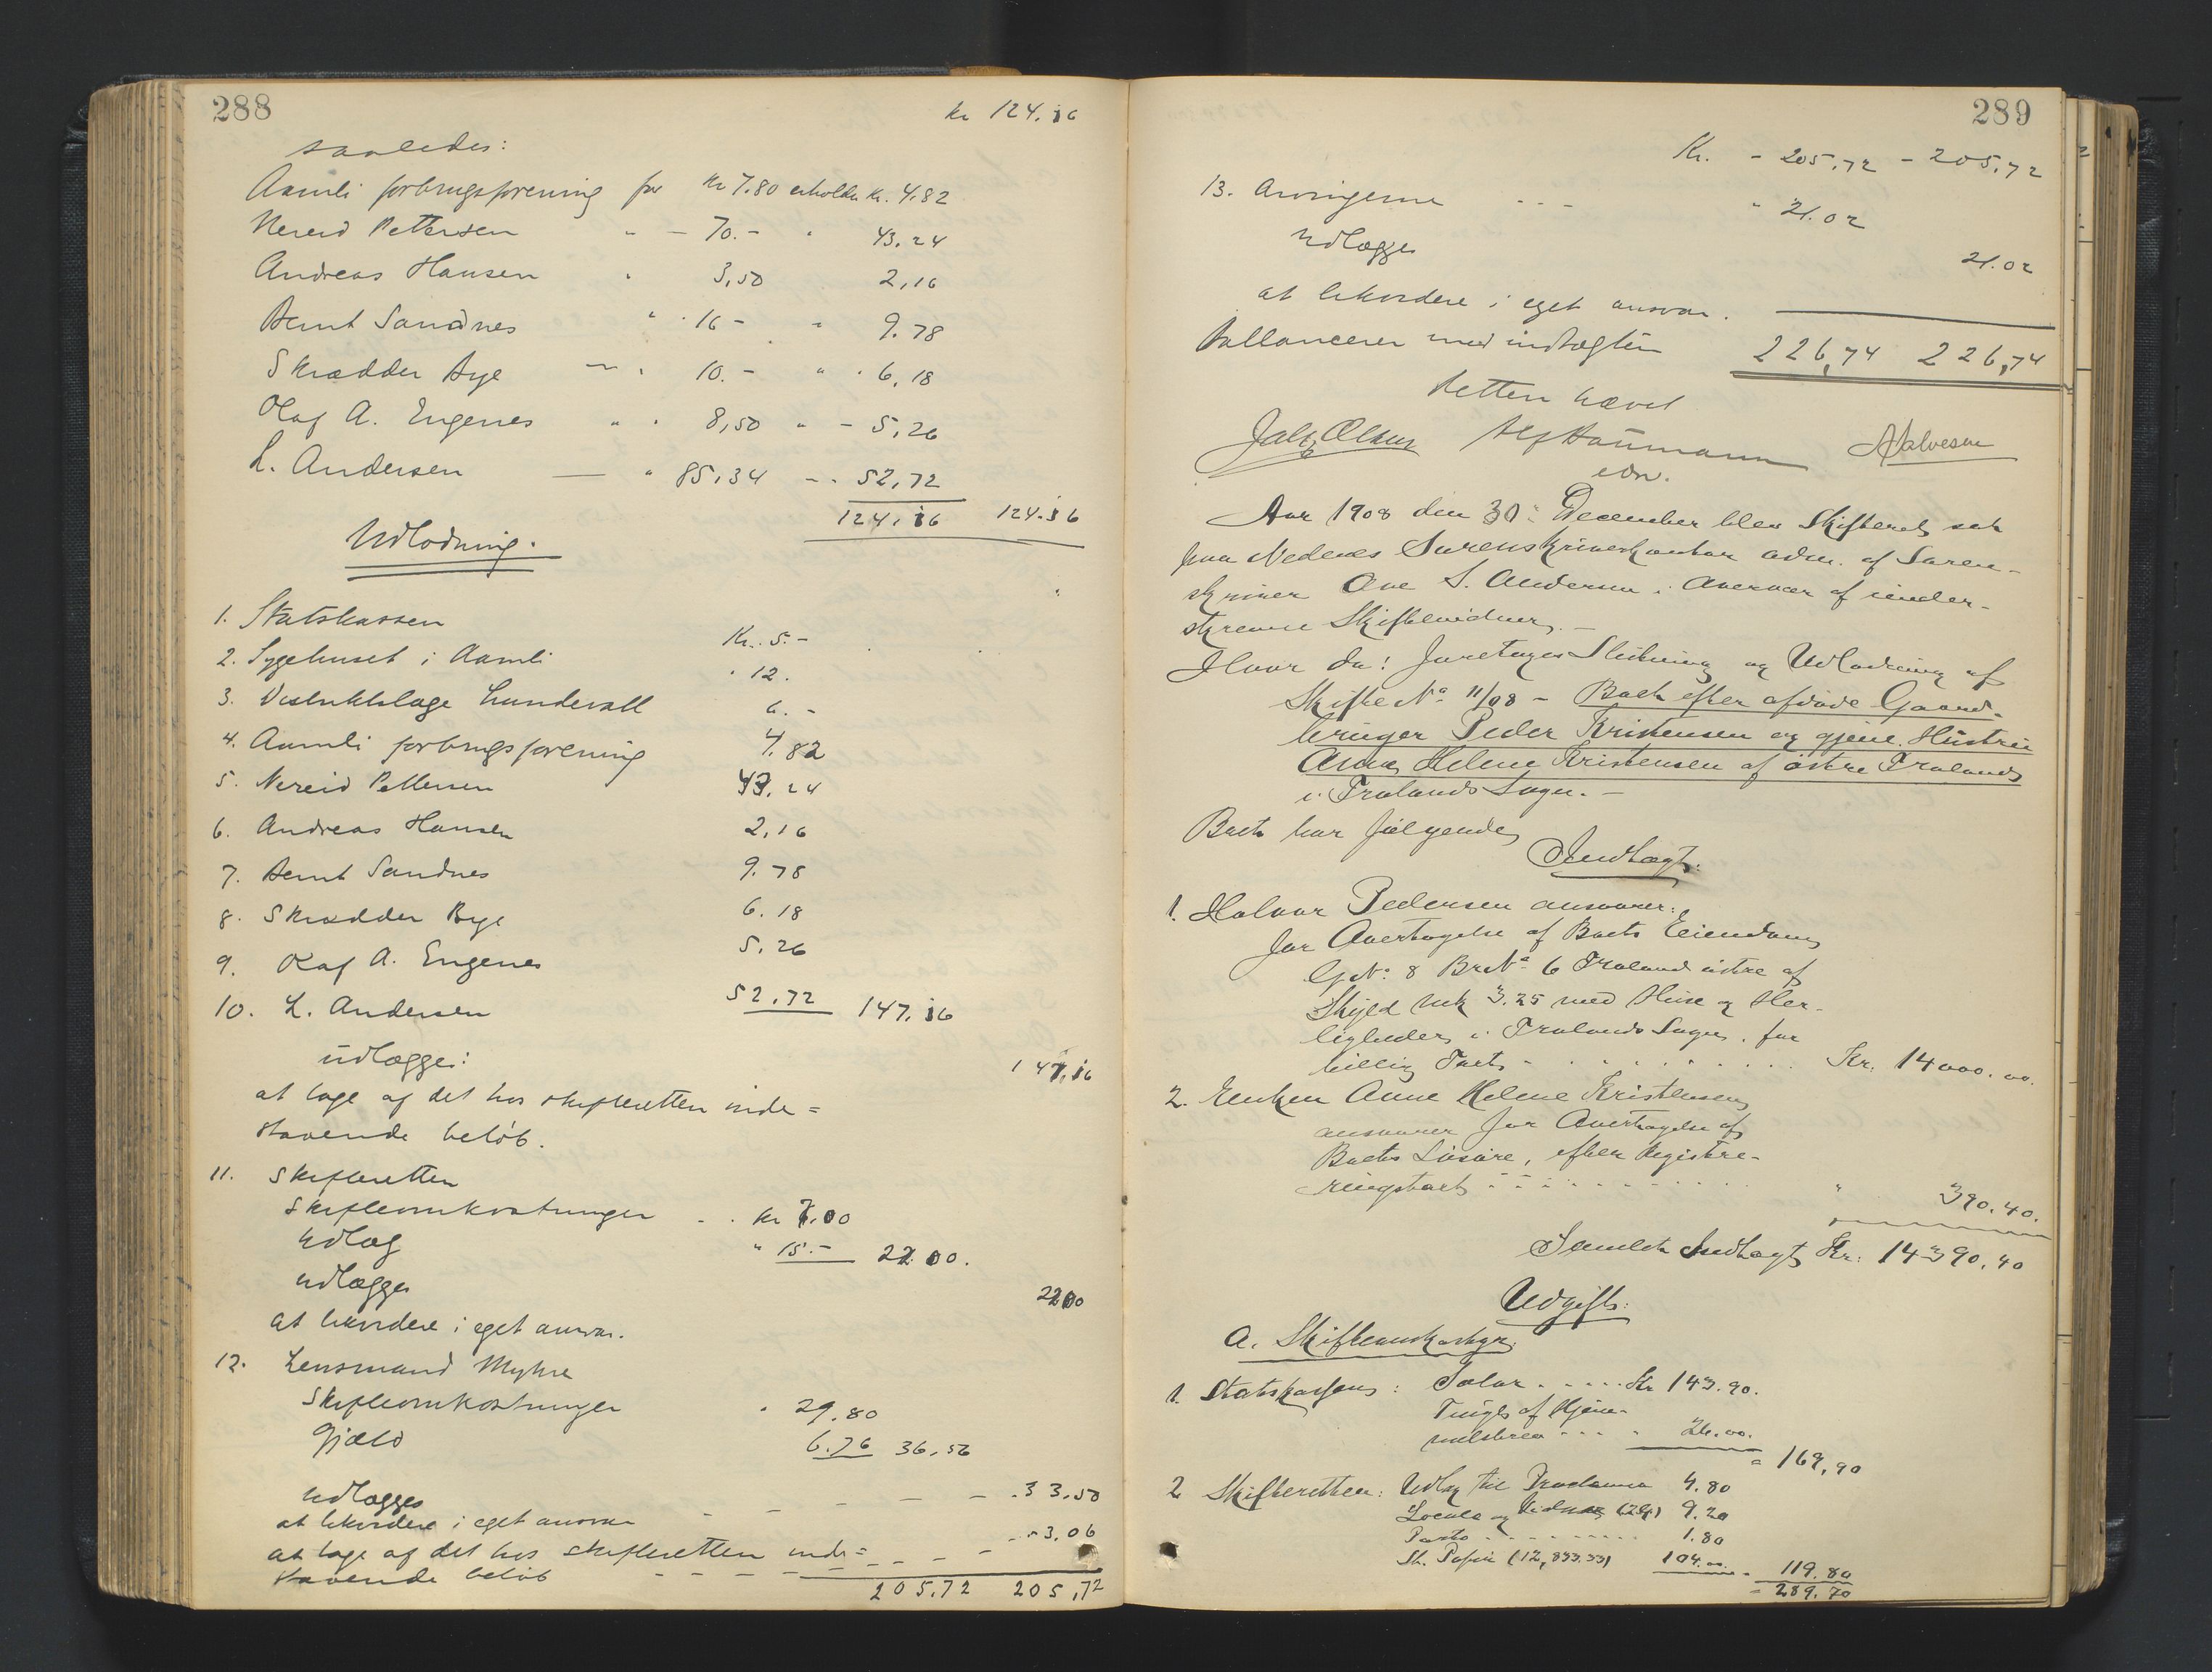 288
kr 124.16
saaledes:
Aamli forbrugsforening for kr 7.80 erholder kr. 4.82
Nereid Pettersen " - 70.- " 43.24
Andreas Hansen " 3,50 2,16
Bernt Sandnes " " 16 - " 9.78
Skrædder Bye — " 10. - " " 6,18
Olaf A. Engenes " " 8,50 " - 5,26
L. Andersen — " 85,34 - " 52,72
124.16 124.16
Udlodning.
1. Statskassen Kr. 5.-
2. Sygehuset i Aamli " 12.
3. Distriktslæge Lundevall 6. -
4. Aamli forbrugsforening 4.82
5. Nereid Pettersen 43.24
6. Andreas Hansen 2,16
7. Bernt Sandnes 9.78
8. Skrædder Bye 6.18
9. Olaf A. Engenes 5.26
10. L. Andersen 52.72 147.16
udlægges: 147.16
at tage af det hos skifteretten inde=
staaende beløb.
11. Skifteretten
Skifteomkostninger - . kr 7.00
Udlæg " 15.- 22.00.
udlægges 22.00
at likvidere i eget ansvar.
12. Lensmand Myhre
Skifteomkostninger " 29.80
Gjæld 6.76 36,56
Udlægges
at likvidere i eget ansvar - - - - - .33.50
at tage af det hos skifteretten inde= - - - - "3.06
staaende beløb - - - - -
205.72 205,72
289
Kr. - 205,72 - 205,72
13. Arvingerne - - - " 21.02
Udlægges 21.02
at likvidere i eget ansvar.
Ballancerer med indtægten 226,74 226,74
Retten hævet
Alf Hammann
edsv.
Aar 1908 den 30: December blev Skifteret sat
paa Nedenes Sorenskriverkontor adm. af Soren-
skriver Ove S. Andersen i Overvær af under-
skrevne Skiftevidner. -
Hvor da: Foretoges Slutning og Udlodning af
Skifte No 11/08 - Boet efter afdøde Gaard-
bruger Peder Kristensen og gjenl. Hustru
Anne Helene Kristensen af østre Froland
i Frolands Sogn. -
Boet har følgende
Indtægt:
1. Halvor Pedersen ansvarer:
for Overtagelse af Boets Eiendom
Gno: 8 Brno: 6 Froland østre af
Skyld mk 3.25 med Huse og Her-
ligheder i Frolands Sogn. for
billig Taxt - . . . . . . . Kr. 14000.00.
2. Enken Anne Helene Kristensen
ansvarer for Overtagelse af
Boets Løsøre, efter Registre-
ringstaxt - - - - - - - " 390.40.
Samlet Indtægt Kr: 14390.40
Udgift:
A. Skifteomkostn.
1. Statskassen: Salær . - - - - Kr 143.90.
Tingl. af Hjem-
melsbrev - - - " 26.00.
" 169,90
2 Skifteretten: Udlæg til Proclama 4.80
Locale og Vidner 9.20
Porto - - - - - - - 1.80
St. Papir (12,833.33) 104.00 - 119.80
= 289.70